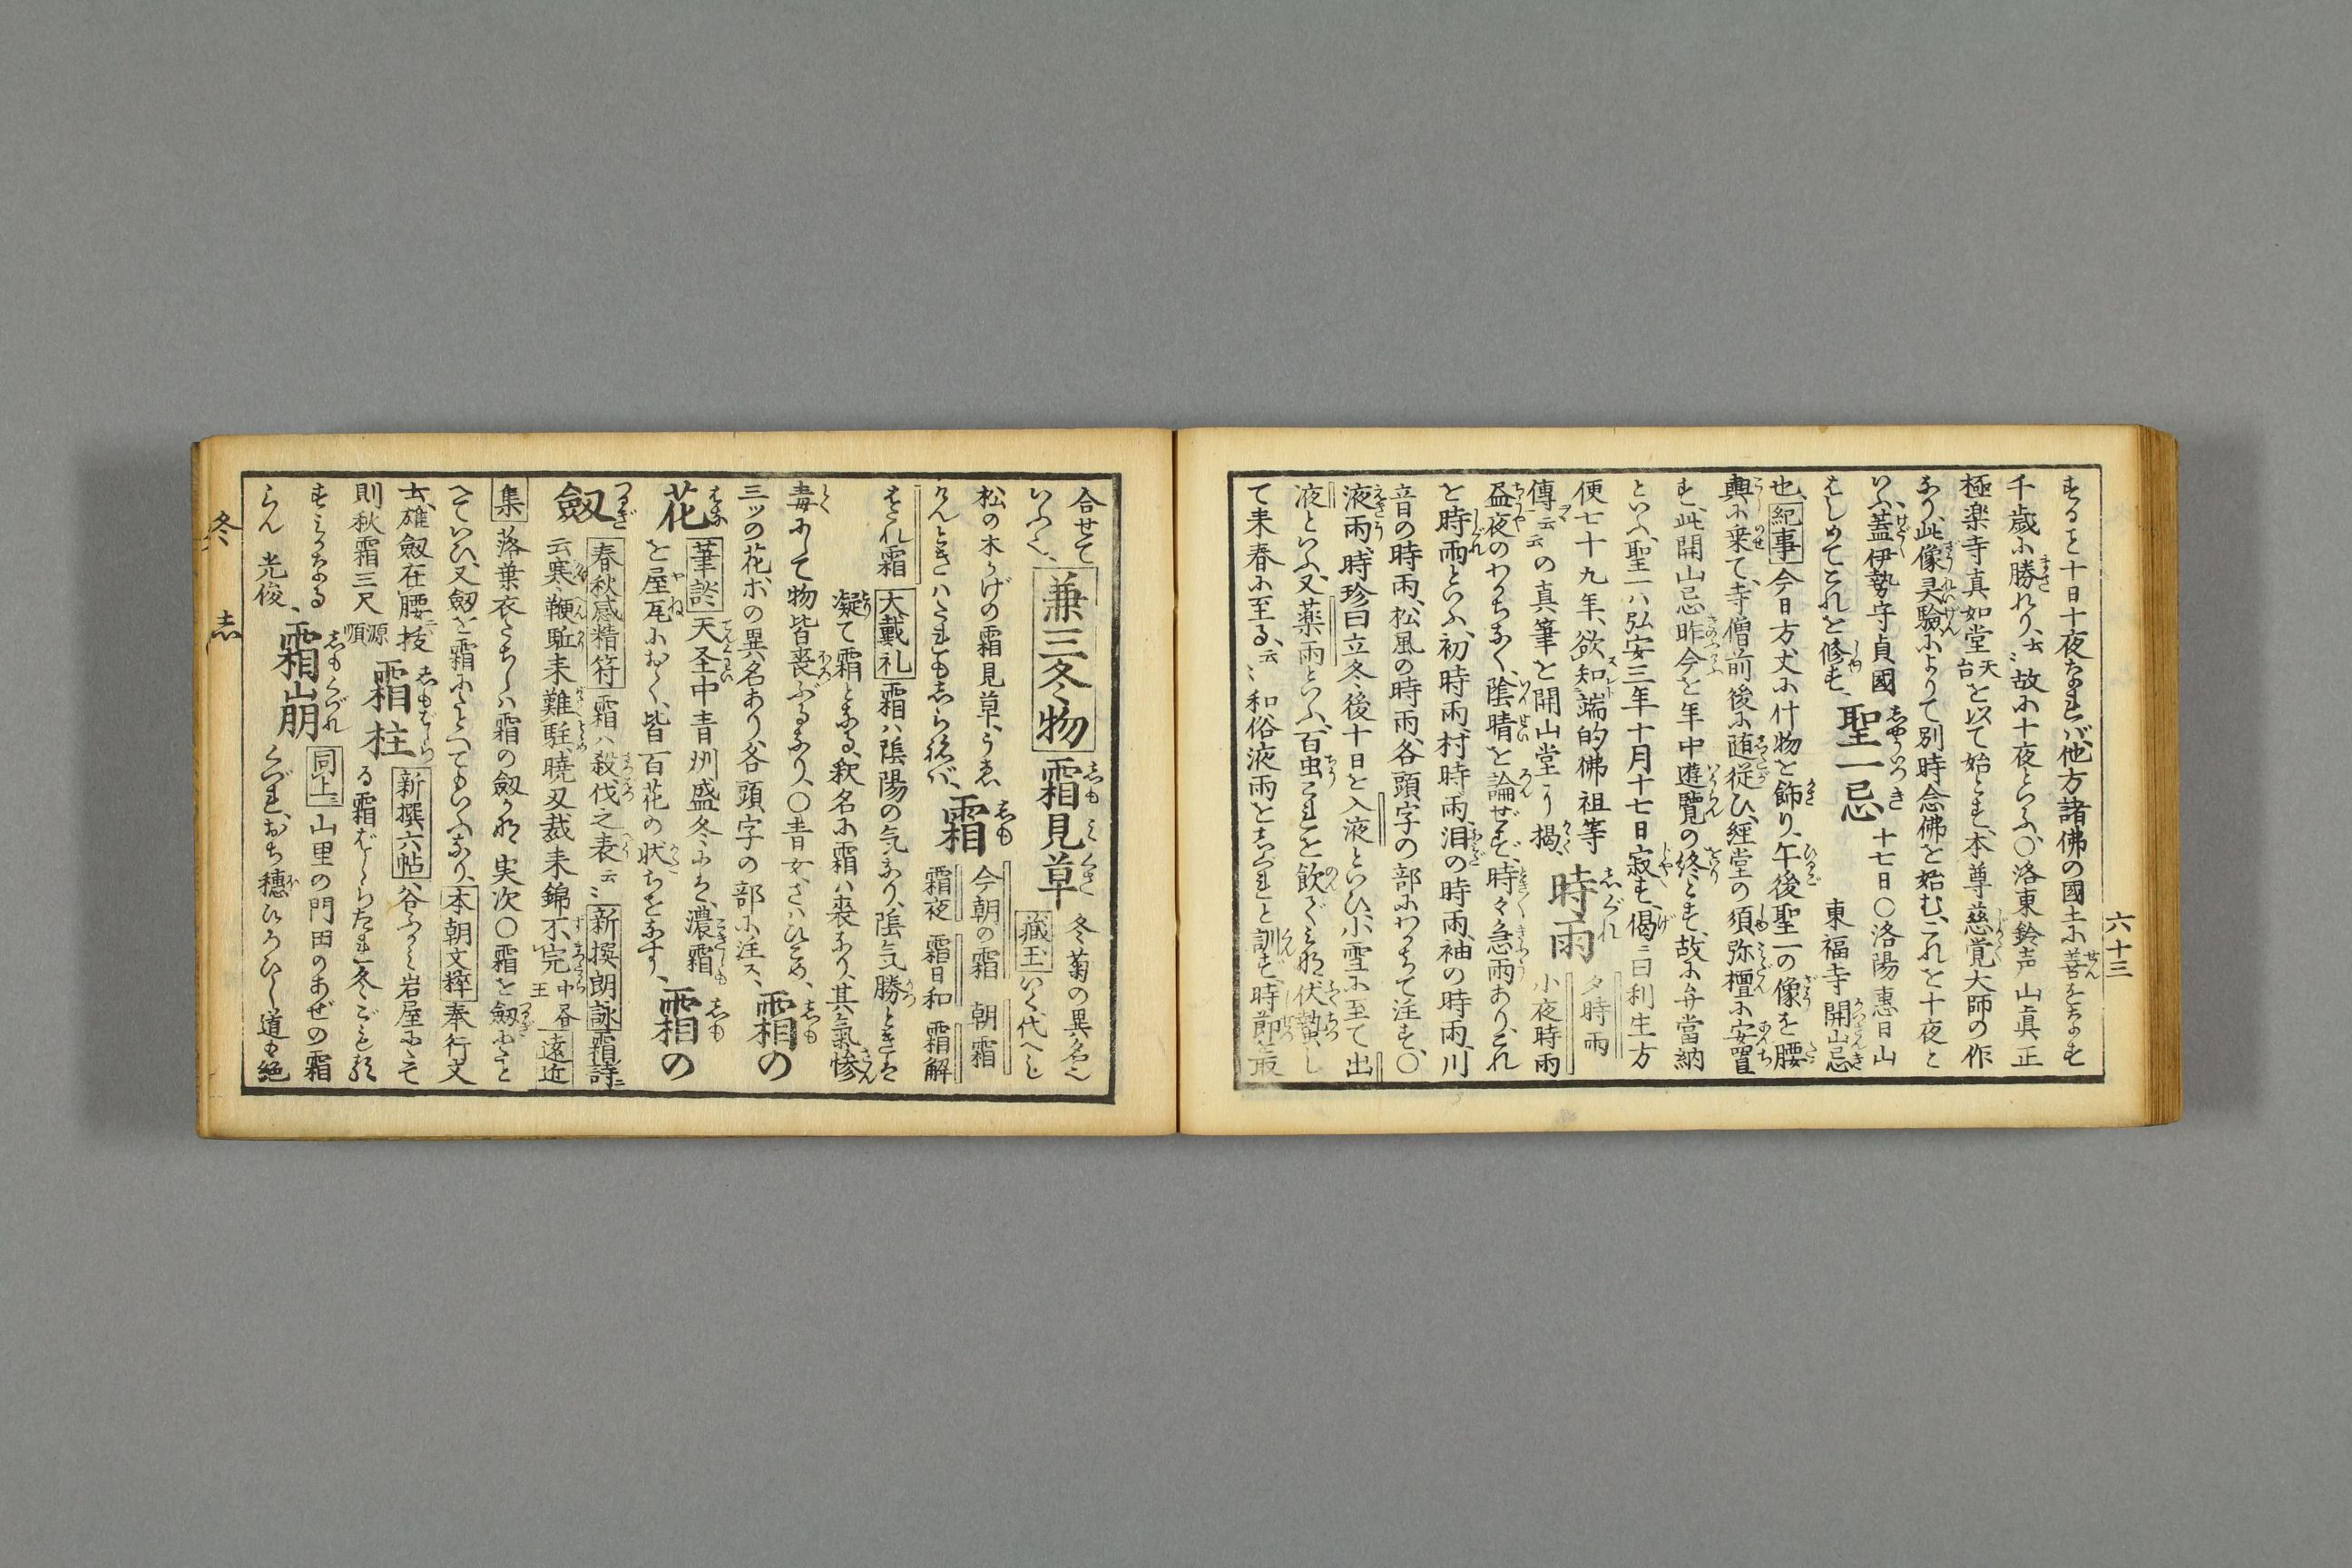 六十三
するこ十日十夜なれバ他方諸佛の國土に善をなす
千歳に勝れり、云〻故に十夜といふ、〇洛東鈴声山真正
極楽寺真如堂天台を以て始とす、本尊慈覚大師の作
なり、此像灵驗によりて別時念佛を始む、これを十夜と
いふ、蓋伊勢守貞國
はじめてこれを修す、
聖一忌
十七日〇洛陽惠日山
東福寺開山忌
也、紀事今日方丈に什物を飾り、午後聖一の像を腰
輿に乗て、寺僧前後に随従ひ、經堂の須弥檀に安置
す、此開山忌昨今を年中遊覧の終とす、故に弁當納
といふ、聖一ハ弘安三年十月十七日寂す、偈ニ曰利生方
便七十九年、欲知端的佛祖等
傳云云の真筆を開山堂に揭、
時雨
夕時雨
小夜時雨
昼夜のわかちなく、陰晴を論ぜず、時々急雨あり、これ
を時雨といふ、初時雨、村時雨、泪の時雨、袖の時雨、川
音の時雨、松風の時雨、各頭字の部にわかちて注す、〇
液雨、時珍曰立冬後十日を入液といひ、小雪に至て出
液といふ、又薬雨といふ、百虫これを飲で伏蟄し
て来春に至る、云〻和俗液雨をしぐれと訓ず、時節最
合せて
いふべし、
兼三冬物
霜見草
冬菊の異名也
藏玉いく代へし
松の木かげの霜見草、うゑ
けんときハたれもしらねバ、
霜
今朝の霜　朝霜
霜夜　霜日和　霜解
はだれ霜　大戴礼霜ハ陰陽の気なり、陰気勝ときは
凝て霜となる、釈名に霜ハ喪なり、其氣惨
毒にして物皆喪ぶるなり、〇青女、さハひこめ、
三ッの花ホの異名あり、各頭字の部に注ス、
霜の
花
筆談天圣中青州盛冬には、濃霜
を屋瓦におく、皆百花の状ちをなす、
霜の
劔
春秋感精符霜ハ殺伐之表云〻新撰朗詠霜詩ニ
云寒鞭駈来難駐、曉刄裁来錦不完中王昼遠近
集落葉衣たちしハ霜の劔かな実次〇霜を劔にたと
へていひ、又劔を霜にたとへてもいふなり、本朝文粹奉行文
云、雄劔在腰、拔
則秋霜三尺　源順
霜柱
新撰六帖谷ふかく岩屋にたて
る霜ばしらたれ冬ごもる
すみかなる
らん　光俊、
霜崩
同上ニ山里の門田のあぜの霜
くづれ、おち穂ひろひし道も絶
冬
志